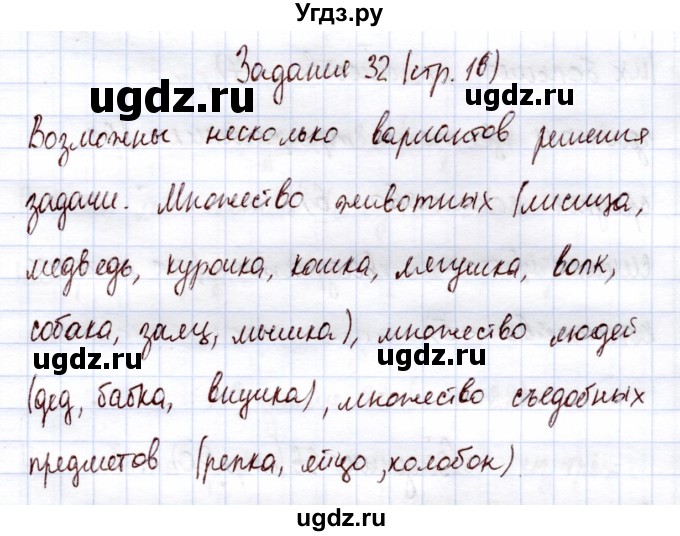 Угдз.ру
Задание 32 (стр. 16)
ugdz.ru
ugdz.ru
Возможны несколько вариантов решения
задачи. Множество животных (лисица,
медведь, курочка, кошка, лягушка, волк,
собака, заяц, мышка), множество людей
ugdz.ru
ugdz.ru
(дед, бабка, внучка), множество съедобных
предметов (репка, яйцо, колобок)
ugdz.ru